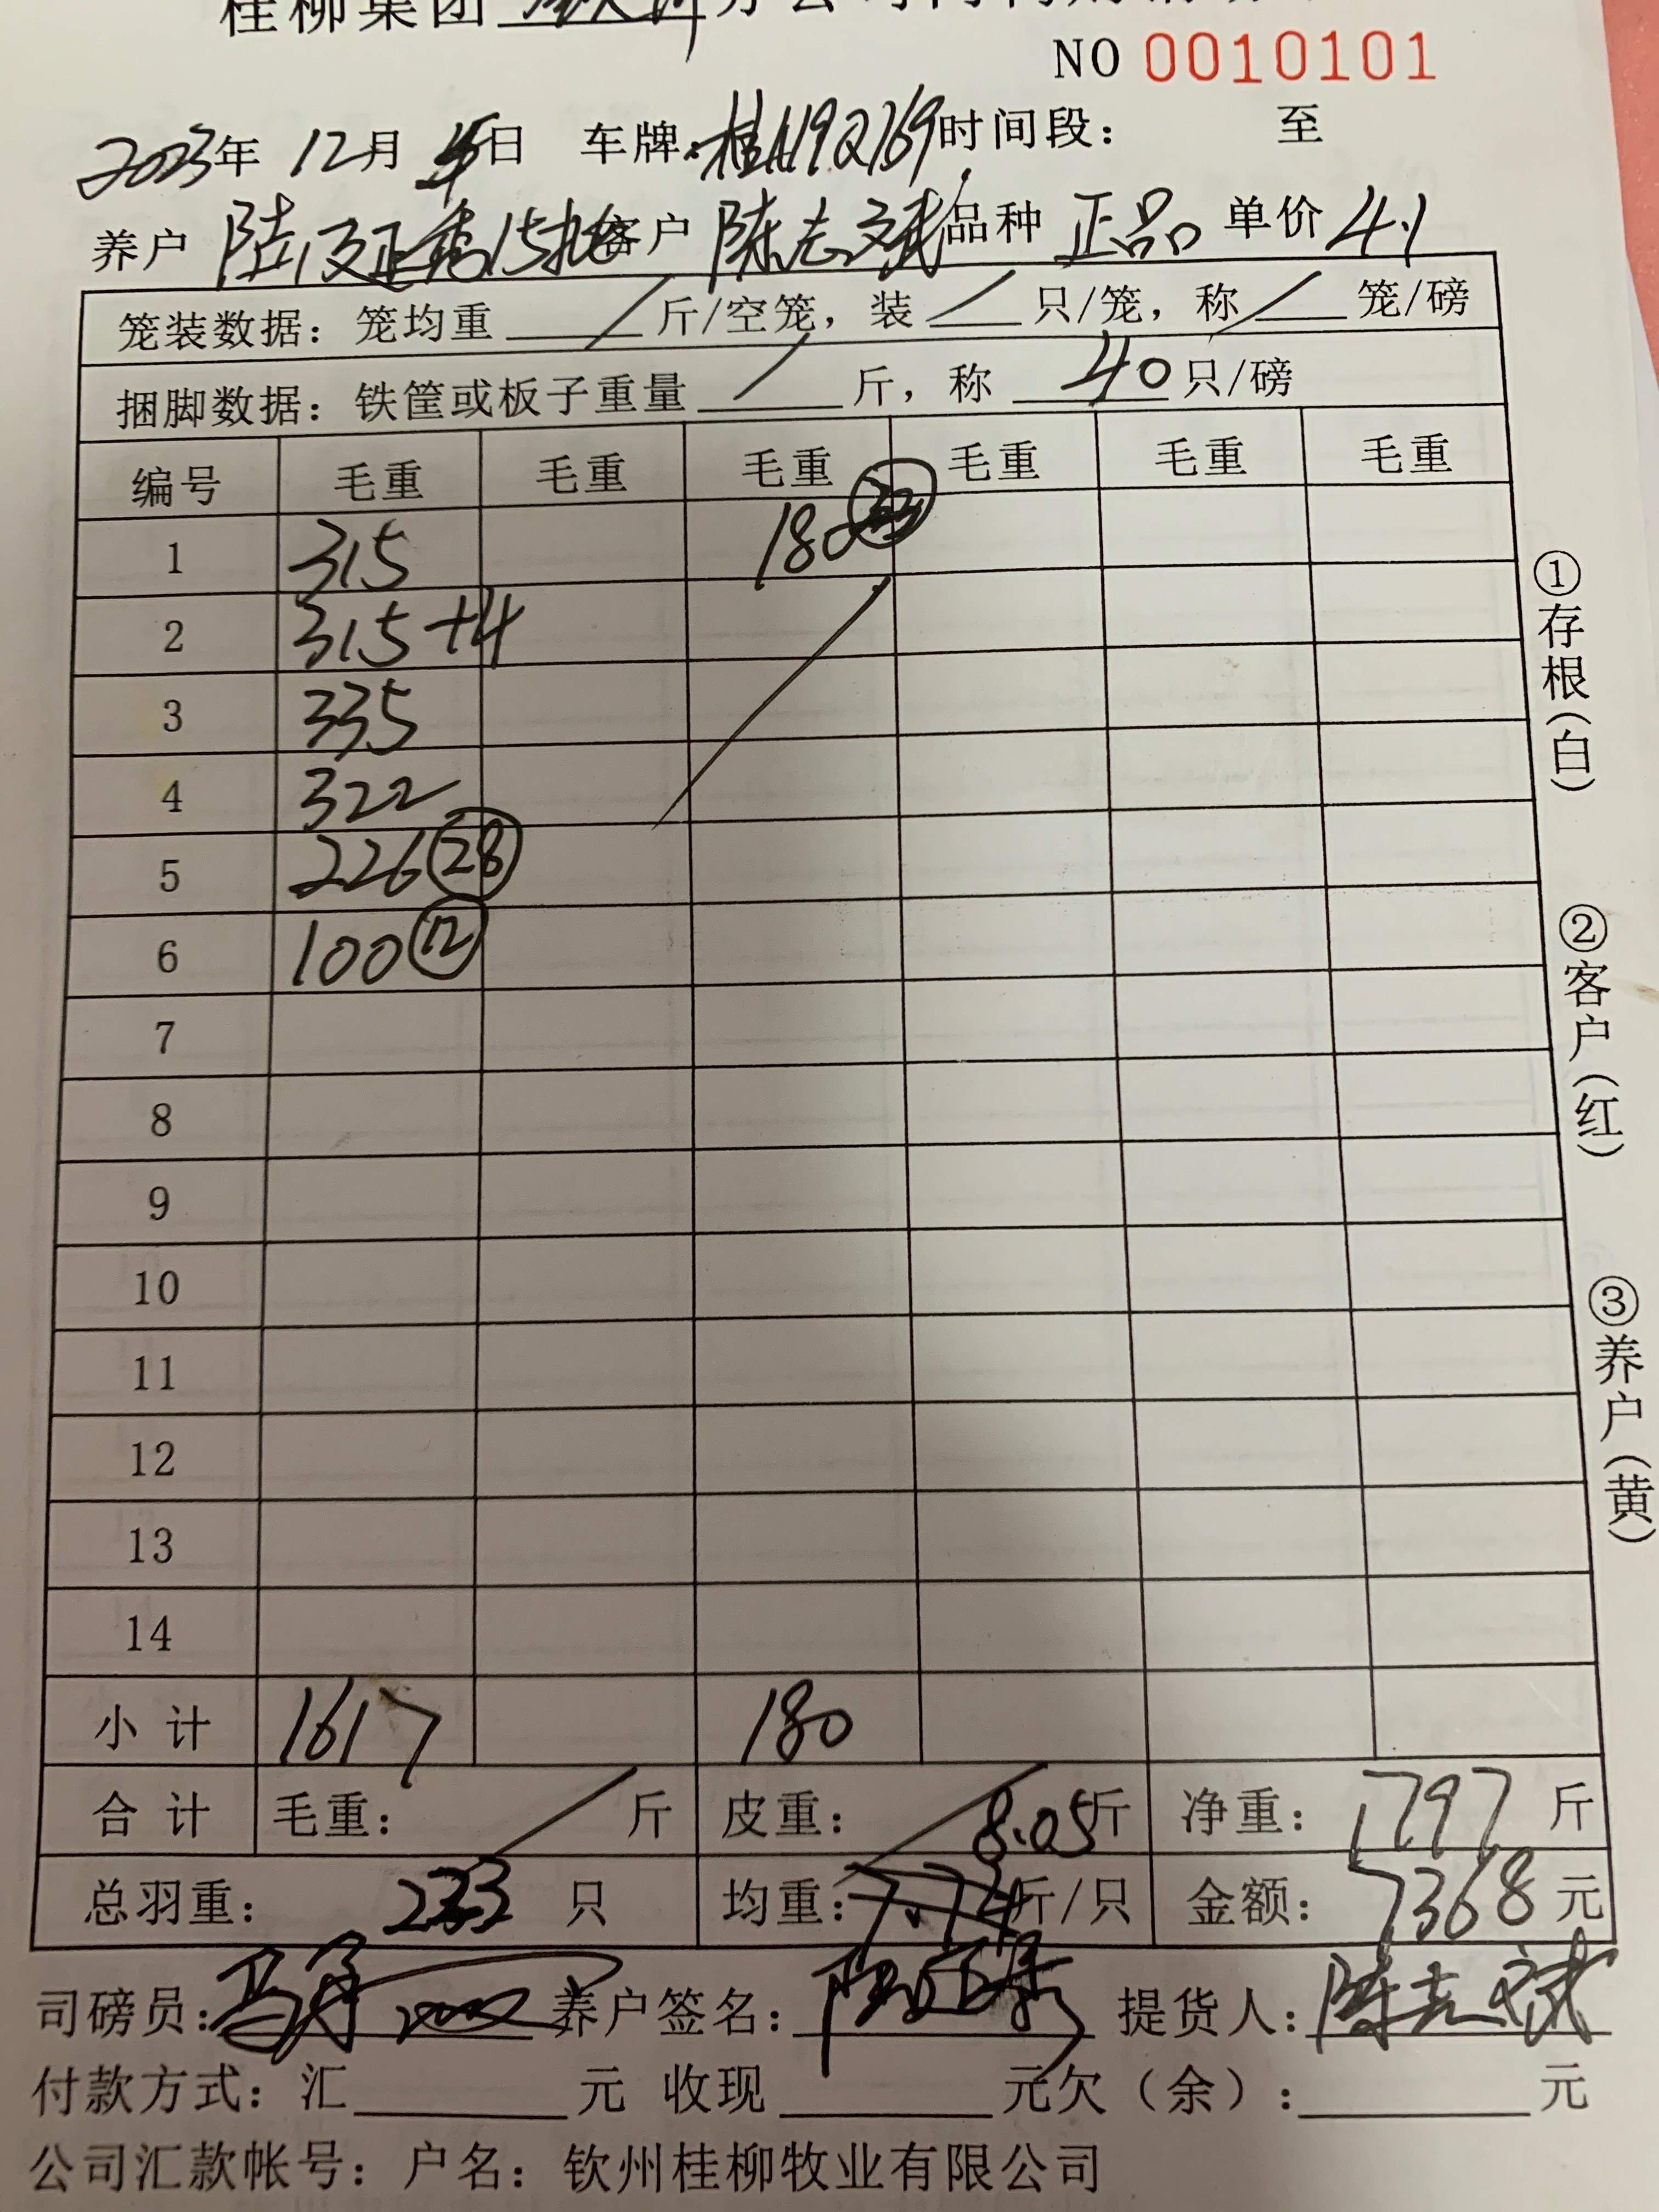 桂柳集团 分公司
NO 0010101
2023年 12月 日 车牌:桂N9Q769 时间段: 至
养户 陆 15批 客户 陈志斌 品种 正品 单价 4.1
笼装数据: 笼均重 / 斤/空笼, 装 / 只/笼, 称 / 笼/磅
捆脚数据: 铁筐或板子重量 / 斤, 称 40 只/磅
编号 毛重 毛重 毛重 毛重 毛重 毛重
1 315 180
2 315+4
3 335
4 322
5 226 28
6 100 12
7
8
9
10
11
12
13
14
小计 1617 180
合计 毛重: / 斤 皮重: / 8.05 斤 净重: 1797 斤
总羽重: 233 只 均重: 斤/只 金额: 7368 元
司磅员: 养户签名: 提货人: 陈志斌
付款方式: 汇 元 收现 元欠(余): 元
公司汇款帐号: 户名: 钦州桂柳牧业有限公司
①存根(白)
②客户(红)
③养户(黄)